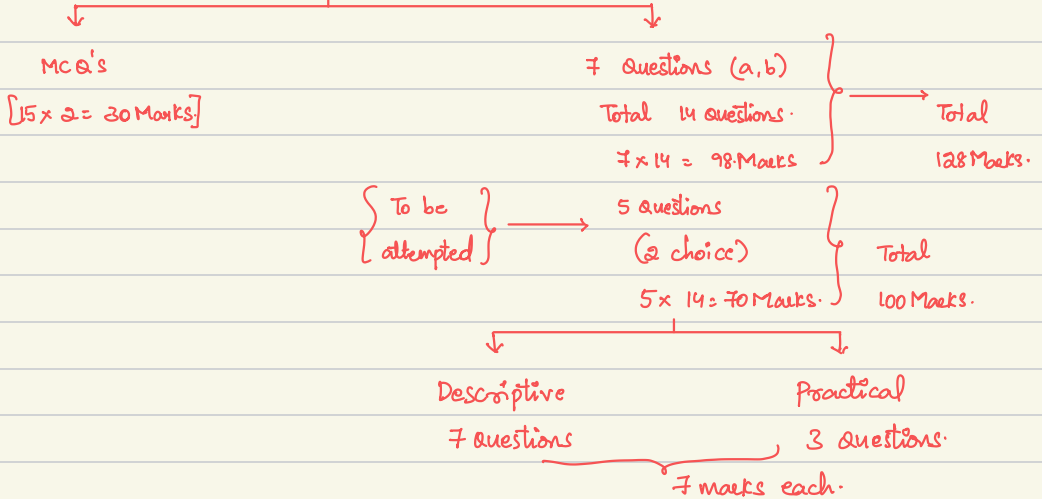 MCQ's
[15 x 2 = 30 Marks.]
7 Questions (a,b)
Total 14 Questions.
7 x 14 = 98 Marks
Total
128 Marks.
To be
attempted
5 Questions
(2 choice)
5 x 14 = 70 Marks.
Total
100 Marks.
Descriptive
7 Questions
Practical
3 Questions.
7 marks each.